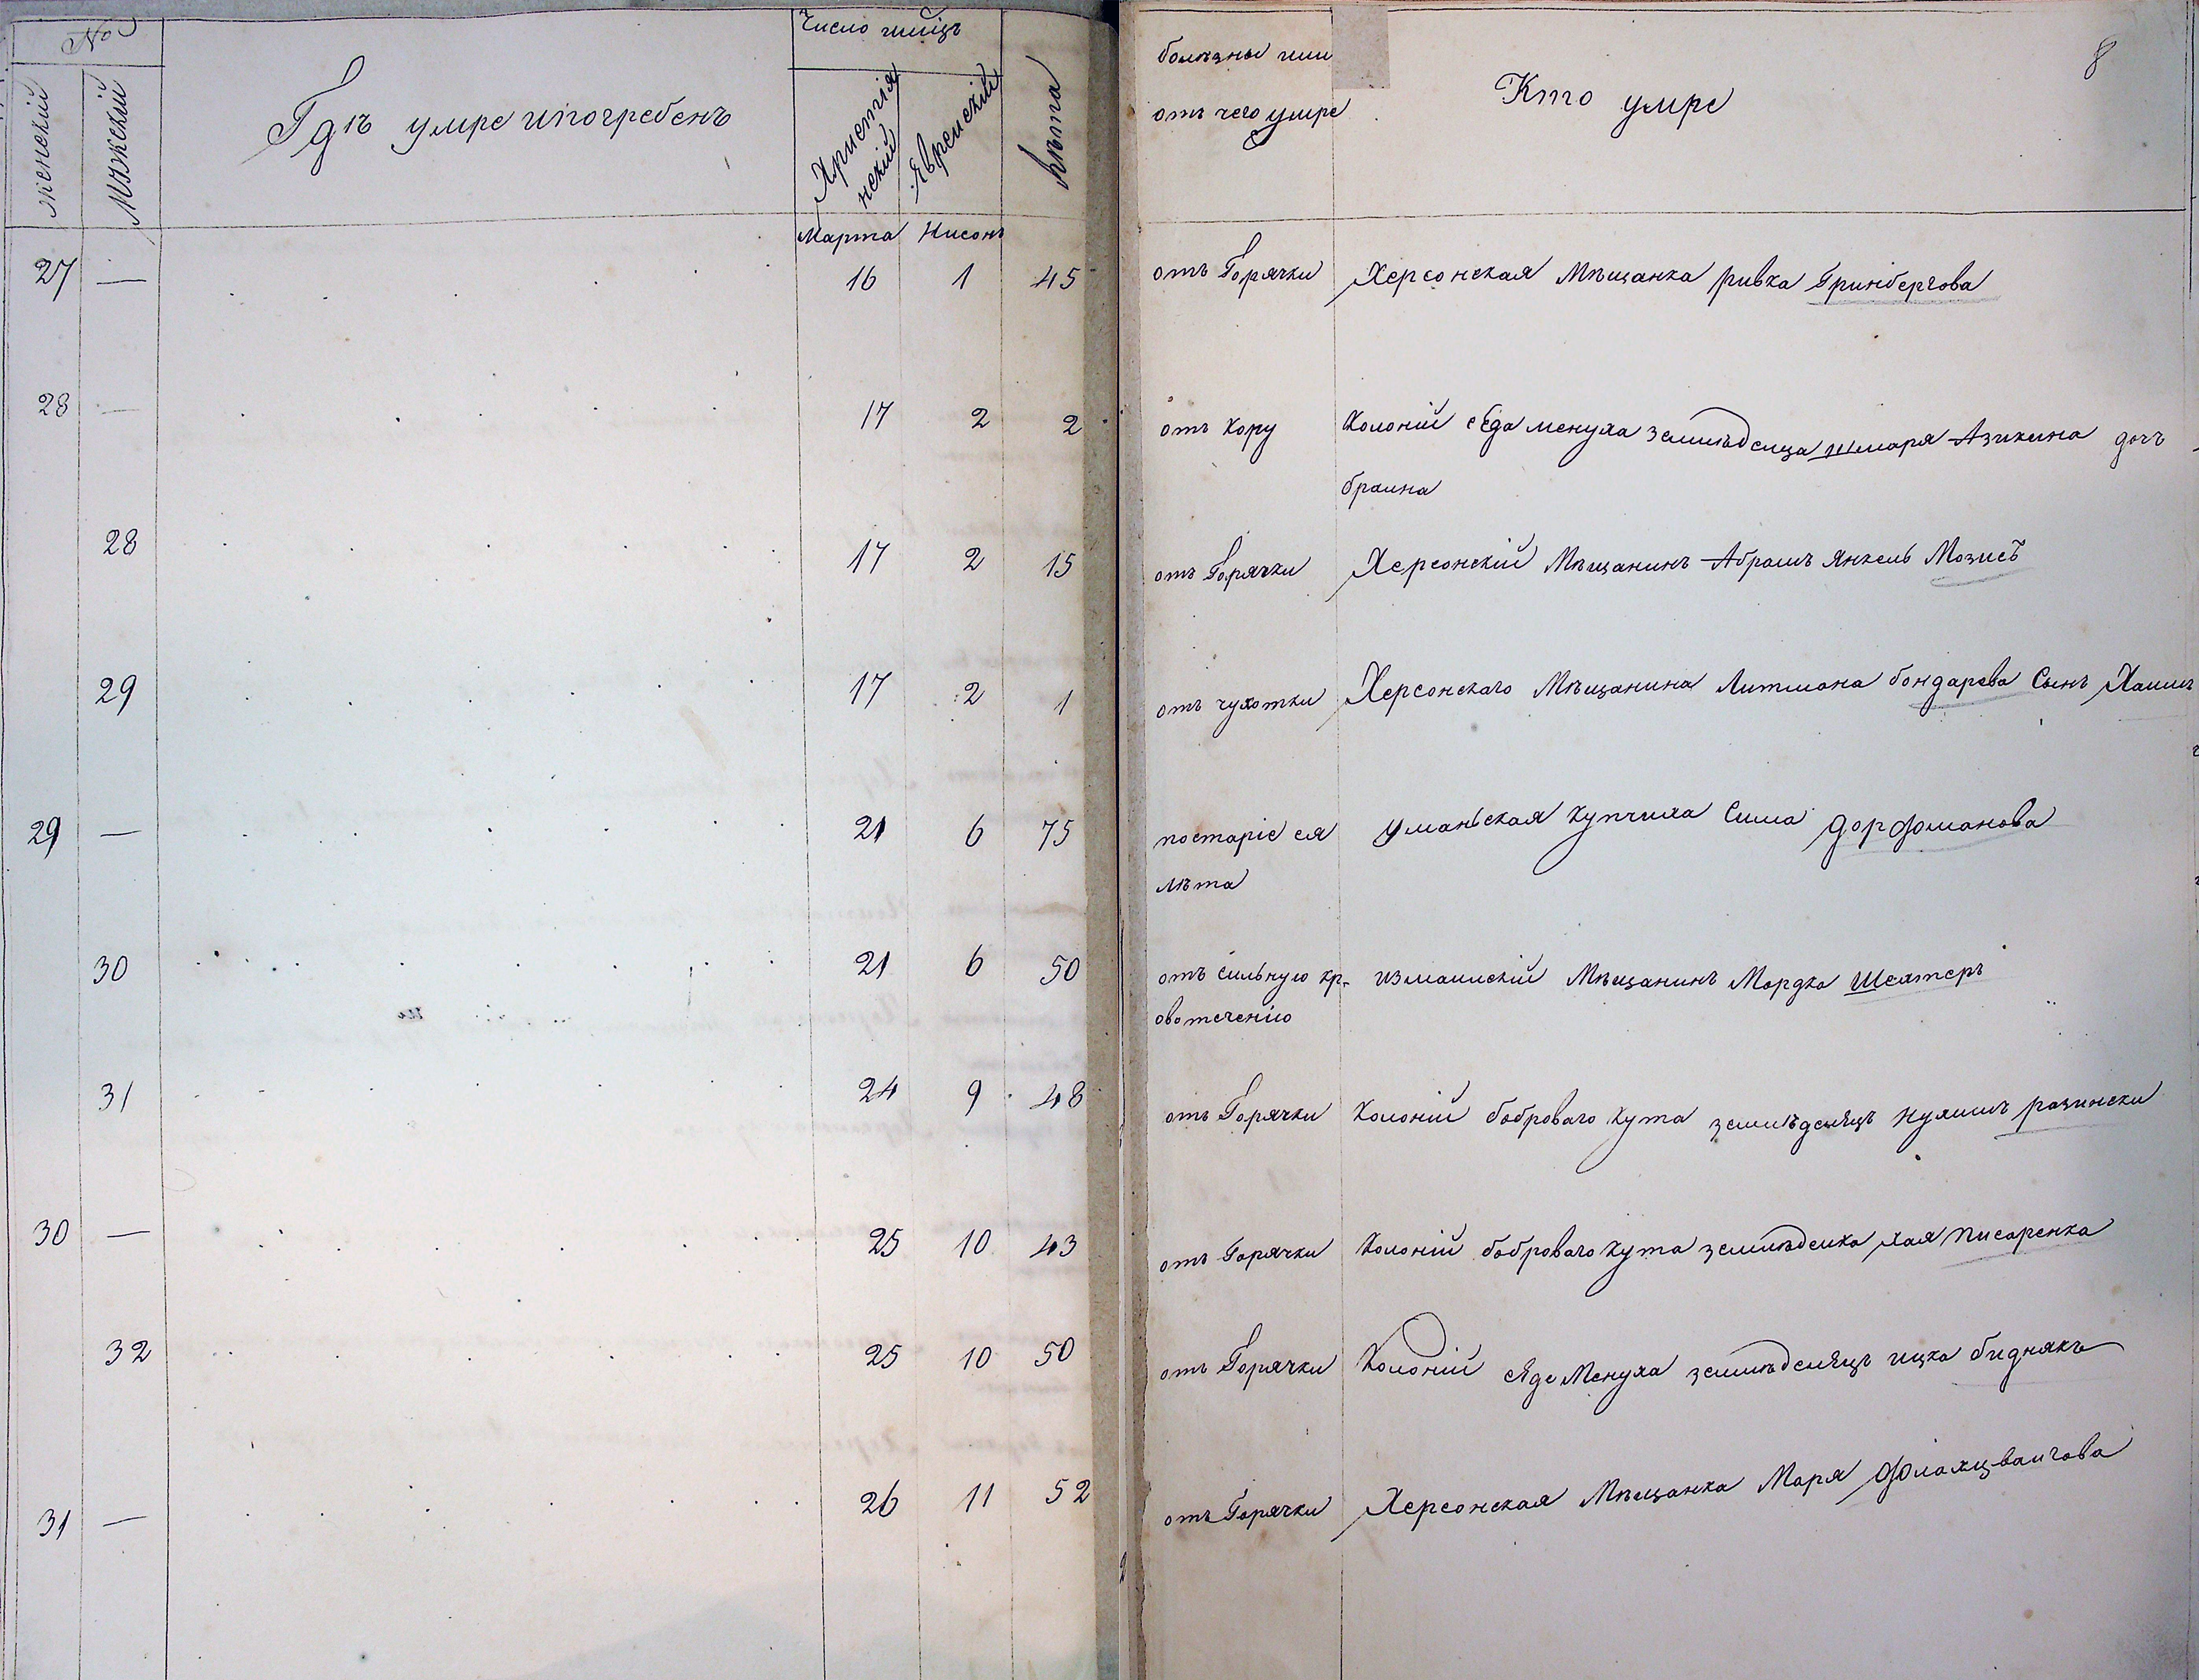 №
женскій
Мужскій
Гдѣ умре и погребенъ
Число
Христія
нскій
Яврейскій
Лѣта
болѣзны или
отъ чего умре
Кто умре
8
Марта Нисонъ
27 — 16 1 45 отъ Горячки Херсонская Мѣщанка ривка Гринбергова
28 — 17 2 2 отъ кору Колоній седа менуха земледелца шмаря Азикина дочъ
браина
28 17 2 15 отъ Горячки Херсонскій Мѣщанинъ Абрамъ Янкель
29 17 2 1 отъ чухотки Херсонскаго Мѣщанина Литмана бондарева Сынъ Хаимъ
29 — 21 6 75 постаріе ея Уманьская купчиха Сима Дорфманова
лѣта
30 21 6 50 отъ сильную кр- измаилскій Мѣщанинъ Мордко Шехтеръ
овотеченію
31 24 9 48 отъ Горячки Колоній боброваго кута Нухимъ разински
30 — 25 10 43 отъ Горячки Колоній боброваго кута хая писаренка
32 25 10 50 отъ Горячки Колоній сяде Менуха ицко биднякъ
31 — 26 11 52 отъ Горячки Херсонская Мѣщанка Маря